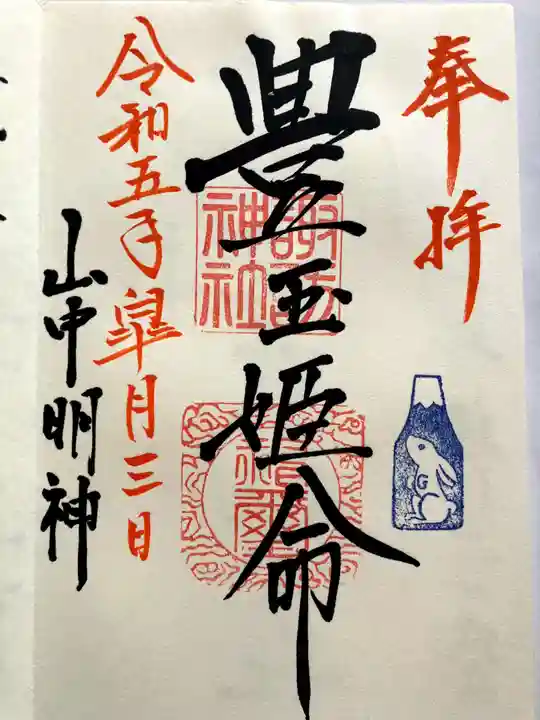 奉拝
豊玉姫命
諏訪神社
令和五年皐月三日
山中明神
G